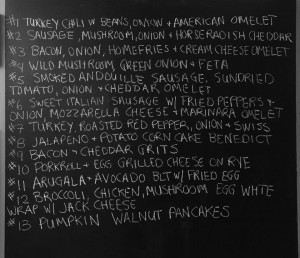 #1 TURKEY CHILI W BEANS, ONION + AMERICAN OMELET
#2 SAUSAGE, MUSHROOM, ONION + HORSERADISH CHEDDAR
#3 BACON, ONION, HOMEFRIES + CREAM CHEESE OMELET
#4 WILD MUSHROOM, GREEN ONION + FETA
#5 SMOKED ANDOUILLE SAUSAGE, SUNDRIED
TOMATO, ONION + CHEDDAR OMELET
#6 SWEET ITALIAN SAUSAGE W/ FRIED PEPPERS +
ONION, MOZZARELLA CHEESE + MARINARA OMELET
#7 TURKEY, ROASTED RED PEPPER, ONION + SWISS
#8 JALAPENO + POTATO CORN CAKE BENEDICT
#9 BACON + CHEDDAR GRITS
#10 PORKROLL + EGG GRILLED CHEESE ON RYE
#11 ARUGALA + AVOCADO BLT W/ FRIED EGG
#12 BROCCOLI, CHICKEN, MUSHROOM EGG WHITE
WRAP W/ JACK CHEESE
#13 PUMPKIN WALNUT PANCAKES